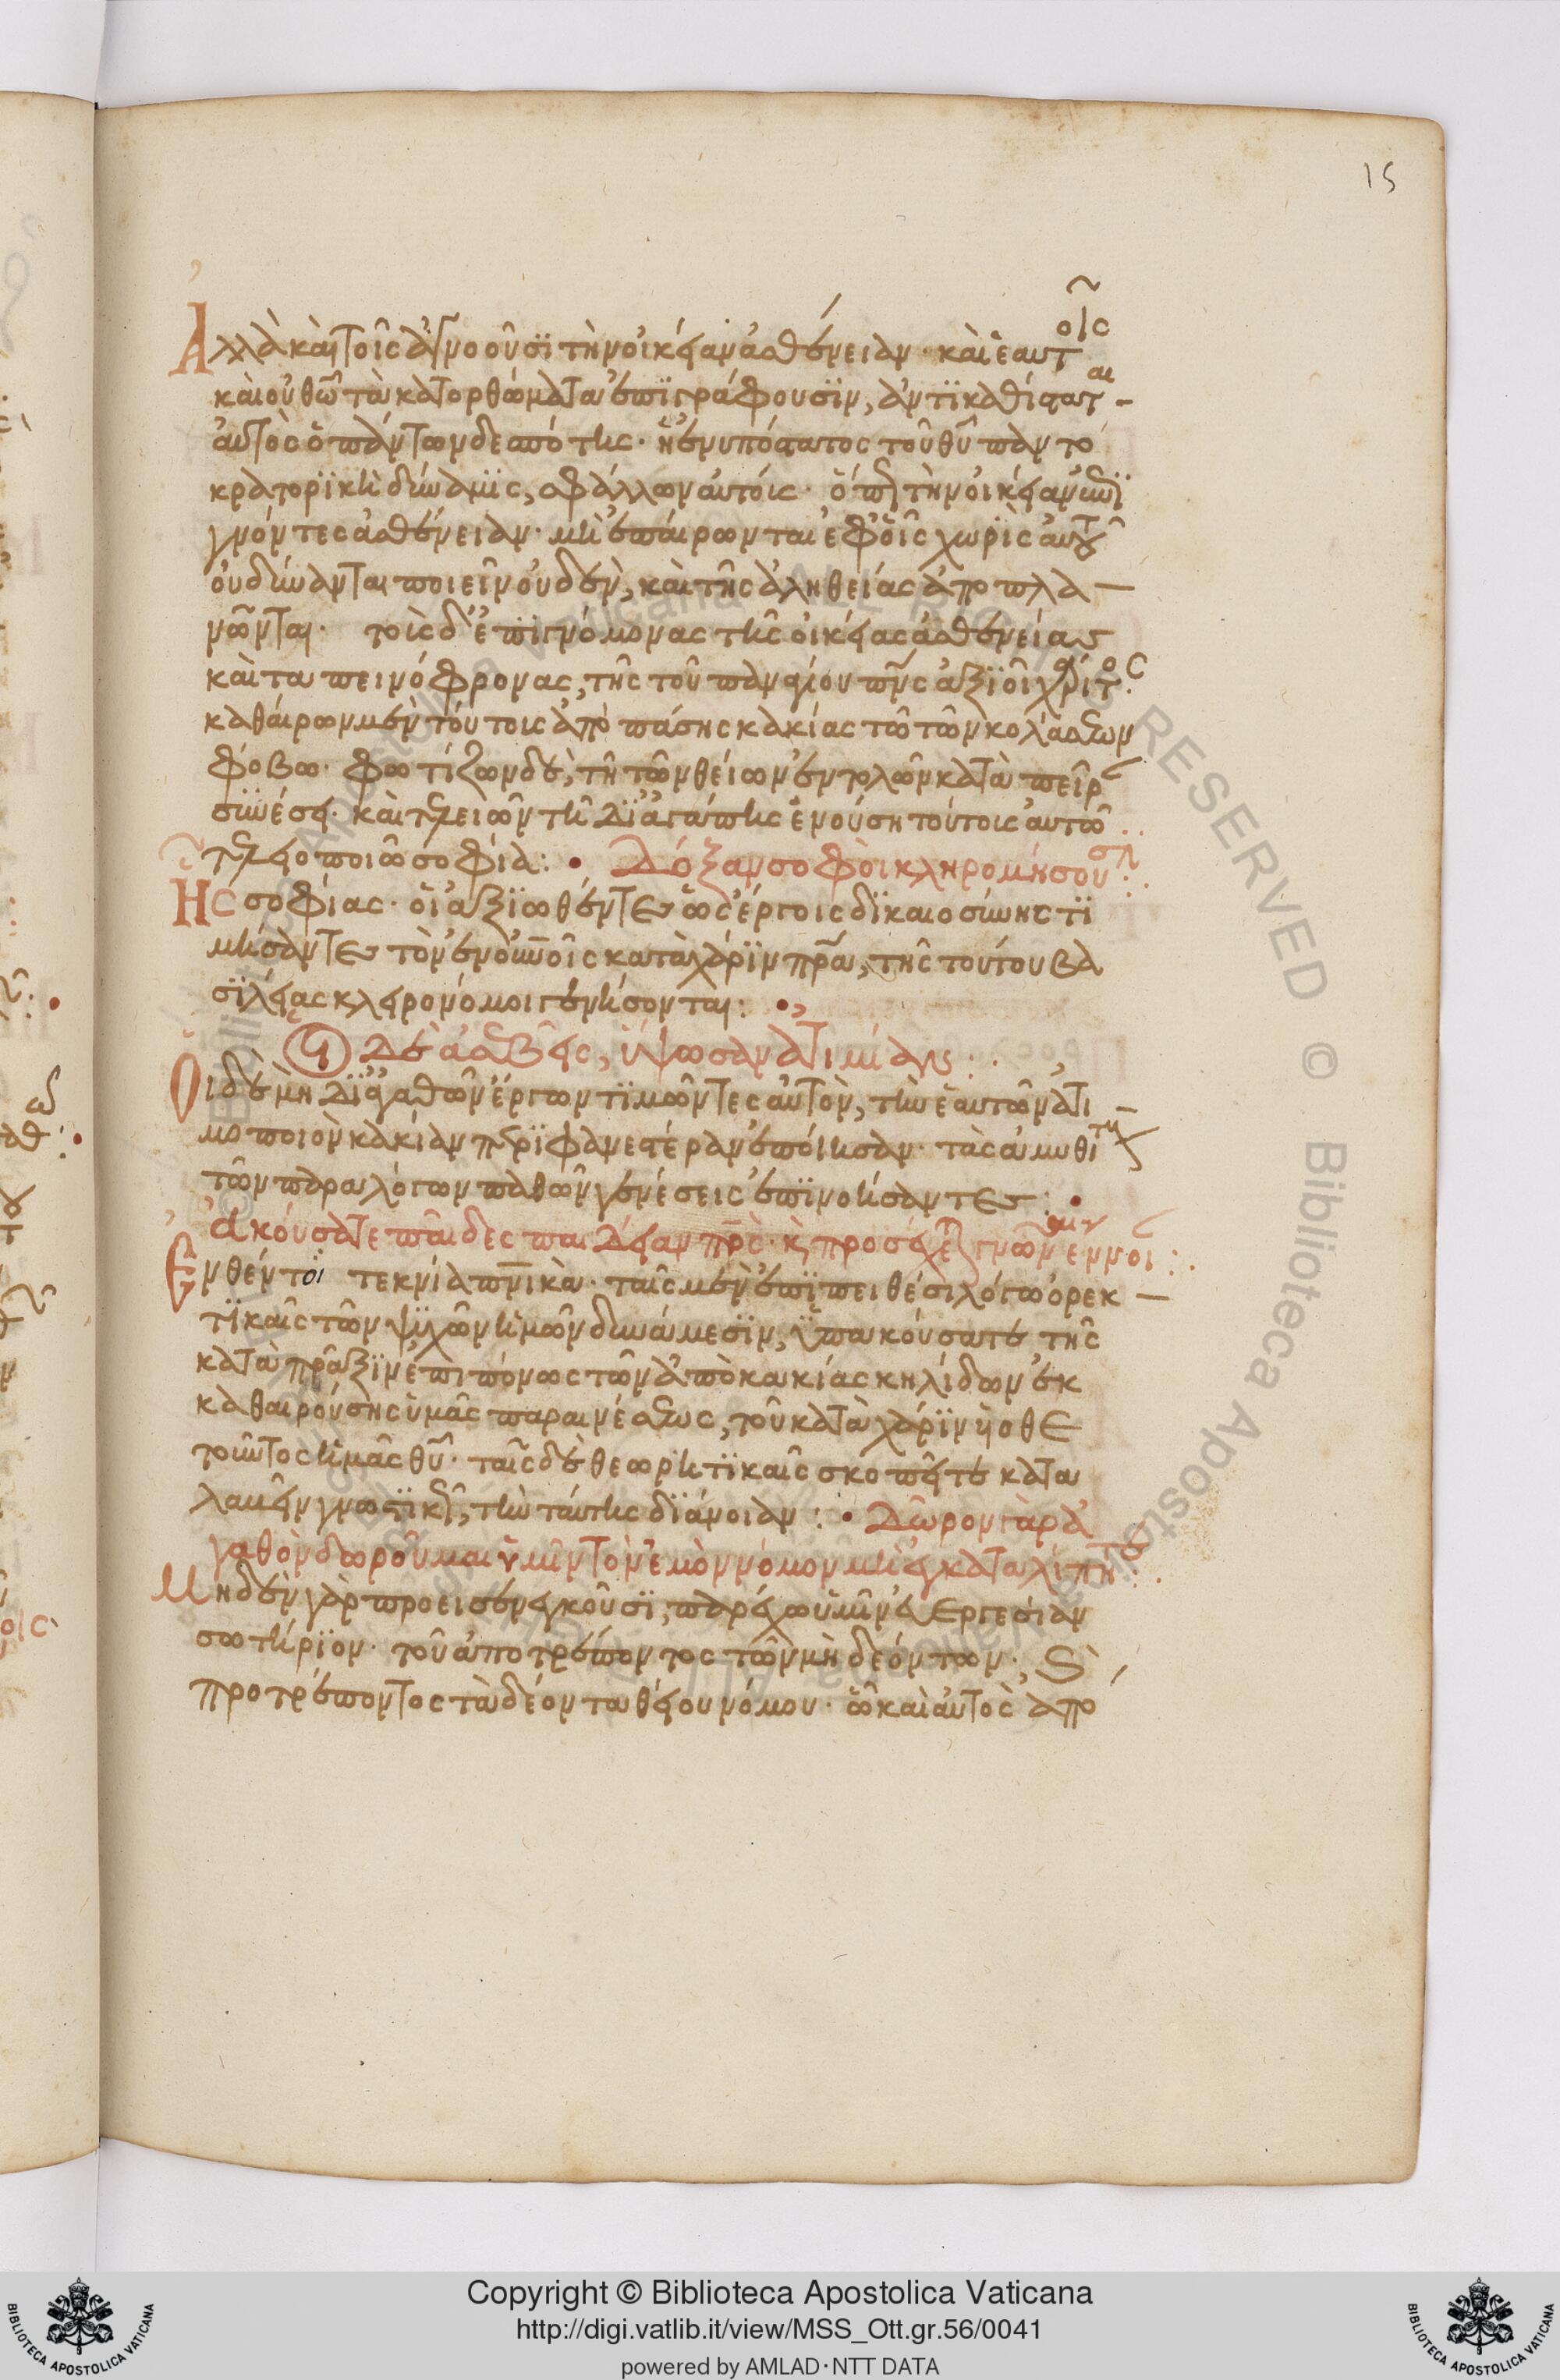 15
Ἀλλὰ καὶ τοῖς ἀγνοοῦσι τὴν οἰκείαν ἀσθένειαν· καὶ ἑαυτοῖς
καὶ οὐ θω τὰ κατορθώματα ἐπιγράφουσιν, ἀντικαθίσταται
αὐτὸς ὁ πάντων δεσπότης· ἡ ἐνυπόστατος τοῦ θυ παντο
κρατορικὴ δύναμις, σφάλλων αὐτοίς· ὅπως τὴν οἰκείαν
γνόντες ἀσθένειαν· μὴ ἐπαίρωνται ἐφ οἷς χωρὶς αὐτοῦ
οὐ δύνανται ποιεῖν οὐδὲν, καὶ τῆς ἀληθείας ἀποπλα
νῶνται· τοῖς δ' ἐπιγνόμονας τῆς οἰκείας ἀσθενείας
καὶ ταπεινόφρονας, τῆς τοῦ παναγίου πνς ἀξιοῖ χάριτος·
καθαίρων μὲν τούτοις ἀπὸ πάσης κακίας τῶ τῶν κολάσεων
φόβω· φωτίζων δὲ, τῆ τῶν θείων ἐντολῶν κατὰ πεῖραν
συνέσει· καὶ τελειῶν τῆ δι ἀγάπης ἑνούση τούτοις αὐτῶ
τελειοποιῶ σοφία: • Δόξαν σοφοὶ κληρονομήσουσιν:
Ἧς σοφίας· οἱ ἀξιωθέντες ὡς ἔργοις δικαιοσύνης τι
μήσαντες τὸν ἐν οὐνοῖς κατὰ χάριν πρα, τῆς τούτου βα
σιλείας κληρονόμοι γενήσονται: •,
Οἱ δὲ ἀσεβεῖς, ὕψωσαν ἀτιμίαν:
Οἱ δὲ μὴ δι ἀγαθῶν ἔργων τιμῶντες αὐτὸν, τὴν ἑαυτῶν ἀτι
μοποιὸν κακίαν περιφανεστέραν ἐποίησαν· τὰς ἀμυθήτους
τῶν παραλόγων παθῶν γενέσεις ἐπινοήσαντες: •
Ἀκούσατε παῖδες παιδείαν πρς· κ προσέχετε γνῶναι ἔννοιαν:
Ἐνθέντοι τεκνία πνικὰ· ταῖς μὲν ἐπιπειθέσι λόγω ὀρεκ
τικαῖς τῶν ψυχῶν ἡμῶν δυνάμεσιν, ὑπακούσατε τῆς
κατὰ πρᾶξιν ἐπιπόνως τῶν ἀπὸ κακίας κηλίδων ἐκ
καθαιρούσης ὑμᾶς παραινέσεως, τοῦ κατὰ χάριν υἱοθε
τοῦντος ἡμᾶς θυ· ταῖς δὲ θεωρητικαῖς σκοπεῖτε κατα
λαβεῖν γνωστικῶς, τὴν ταύτης διάνοιαν: • Δῶρον γὰρ ἀ
γαθὸν δωροῦμαι ὑμῖν τὸν ἐμὸν νόμον μὴ ἐγκαταλίπητε:
Μηδὲν γὰρ προεισενεγκοῦσι, παρέχω ὑμῖν εὐεργεσίαν
σωτήριον· τοῦ ἀποτρέποντος τῶν μὴ δεόντων· κ
προτρέποντος τὰ δέοντα θείου νόμου· ὧ καὶ αὐτὸς ἀπο
© Biblioteca Apostolica Vaticana ALL RIGHTS RESERVED
Copyright © Biblioteca Apostolica Vaticana
http://digi.vatlib.it/view/MSS_Ott.gr.56/0041
powered by AMLAD·NTT DATA
BIBLIOTECA APOSTOLICA VATICANA
BIBLIOTECA APOSTOLICA VATICANA